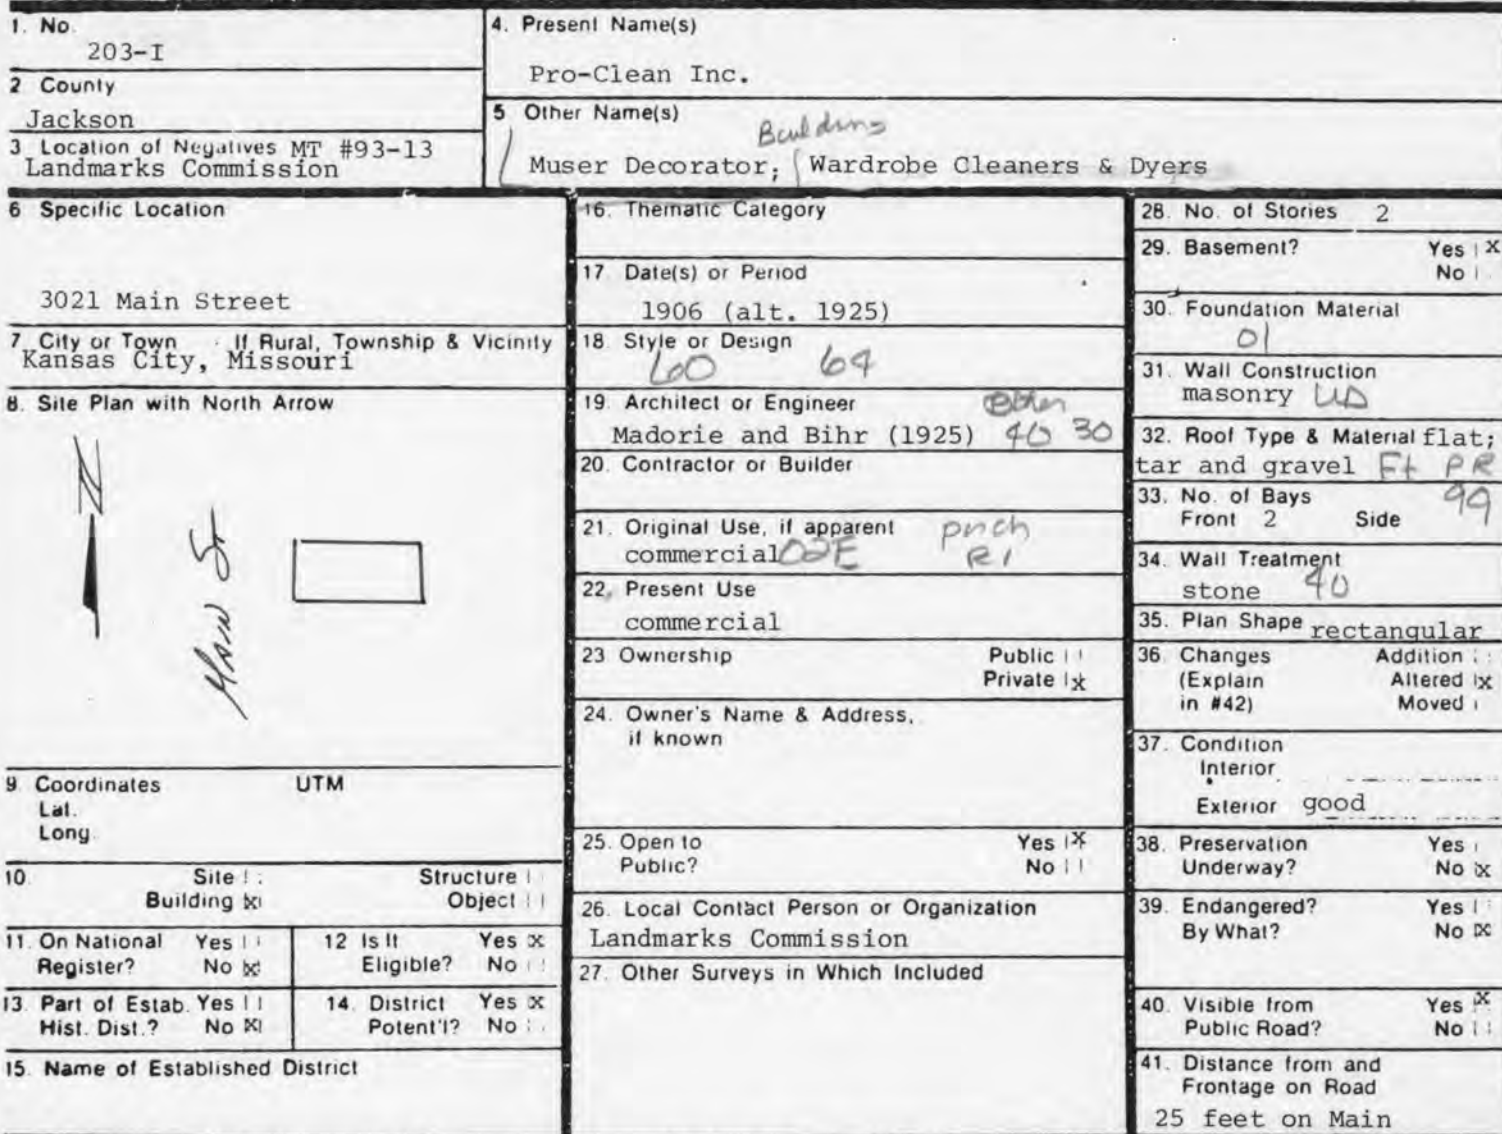 1. No.
203-I
2 County
Jackson
3 Location of Negatives MT #93-13
Landmarks Commission
4. Present Name(s)
Pro-Clean Inc.
5 Other Name(s)
Building
Muser Decorator; Wardrobe Cleaners & Dyers
6 Specific Location
3021 Main Street
7 City or Town If Rural, Township & Vicinity
Kansas City, Missouri
8. Site Plan with North Arrow
N
Main St
9 Coordinates UTM
Lat.
Long.
10. Site Structure
Building X Object
11. On National Yes
Register? No X
12 Is It Yes X
Eligible? No
13. Part of Estab. Yes
Hist. Dist.? No X
14. District Yes X
Potent'l? No
15. Name of Established District
16. Thematic Category
17 Date(s) or Period
1906 (alt. 1925)
18. Style or Design
60 64
19. Architect or Engineer Other
Madorie and Bihr (1925) 40 30
20. Contractor or Builder
21. Original Use, if apparent porch
commercial 02E R1
22. Present Use
commercial
23 Ownership Public
Private X
24. Owner's Name & Address,
if known
25. Open to Yes X
Public? No
26. Local Contact Person or Organization
Landmarks Commission
27. Other Surveys in Which Included
28. No. of Stories 2
29. Basement? Yes X
No
30. Foundation Material
01
31. Wall Construction
masonry UD
32. Roof Type & Material flat;
tar and gravel Ft PR
33. No. of Bays 99
Front 2 Side
34. Wall Treatment
stone 40
35. Plan Shape rectangular
36. Changes Addition
(Explain Altered X
in #42) Moved
37. Condition
Interior
Exterior good
38. Preservation Yes
Underway? No X
39. Endangered? Yes
By What? No X
40. Visible from Yes X
Public Road? No
41. Distance from and
Frontage on Road
25 feet on Main